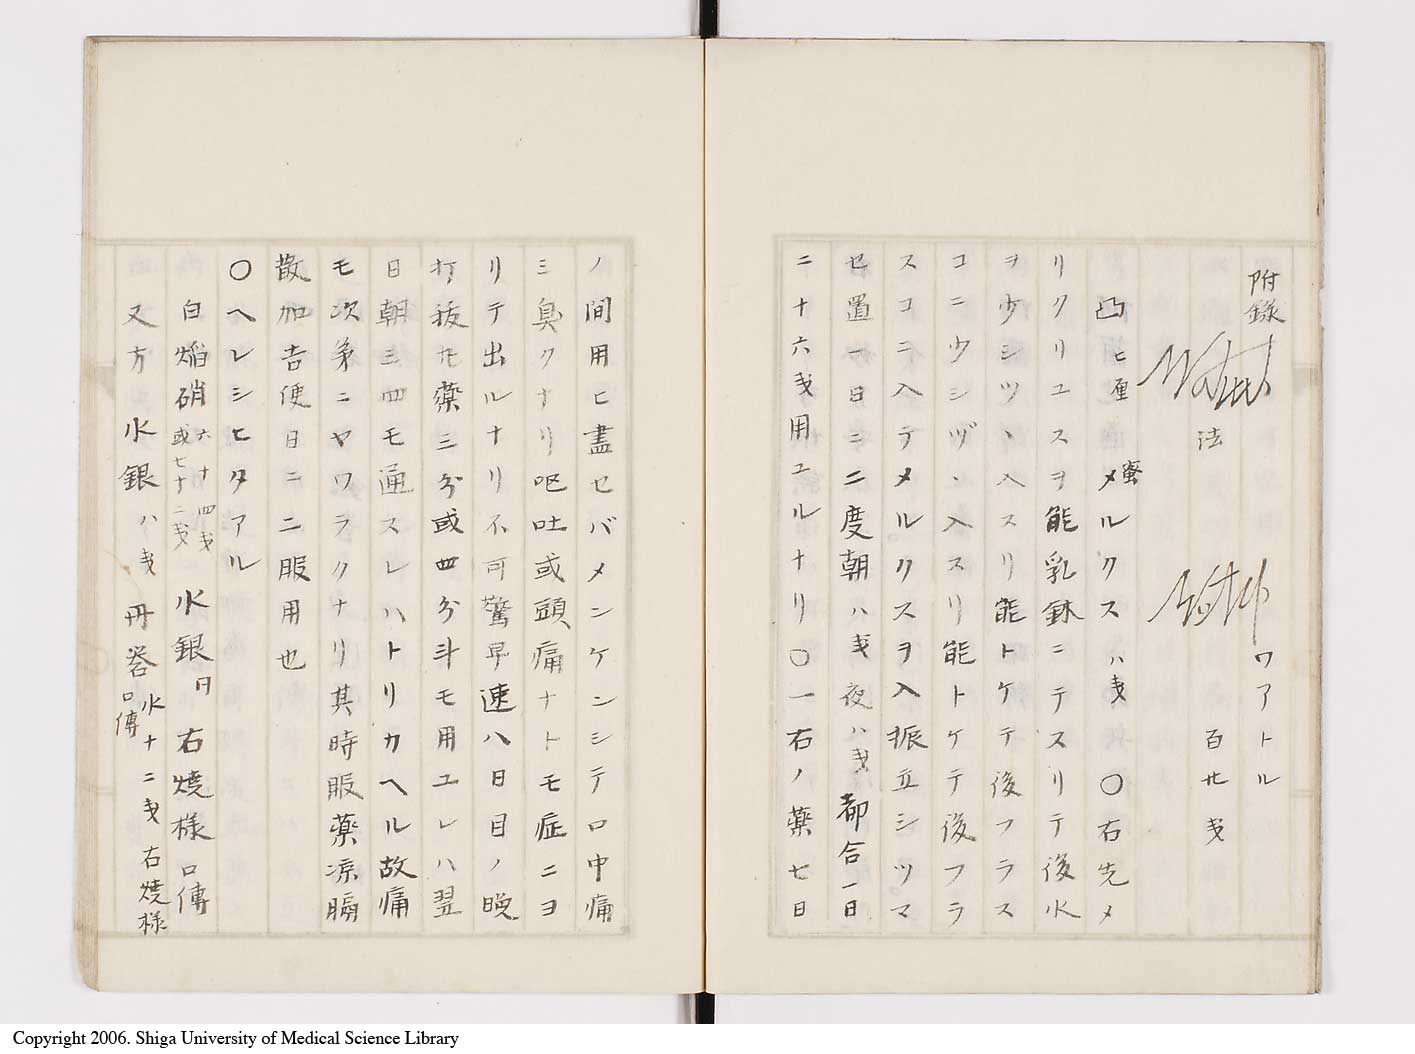 附録
法
ワアトル 百廿戔
凸七厘 メルクス 八戔 〇右先メ
蜜
リクリユスヲ能乳鉢ニテスリテ後水
ヲ少シツヽ入スリ能トケテ後フラス
コニ少シヅヽ入スリ能トケテ後フラ
スコニ入テメルクスヲ入振立シツマ
セ置一日ニ二度朝八戔夜八戔都合一日
二十六戔用ユルナリ〇一右ノ薬七日
ノ間用ヒ盡セバメンケンシテ口中痛
ミ臭クナリ呕吐或頭痛ナトモ症ニヨ
リテ出ルナリ不可驚早速八日目ノ晩
打抜丸薬三分或四分斗モ用ユレハ翌
日朝三四モ通スレハトリカヘル故痛
モ次第ニヤワラクナリ其時服薬凉膈
散加吉使日ニ二服用也
〇ヘレシヒタアル
白焔硝 六十四戔 或七十二戔 水銀 右焼様口傳
又方 水銀 八戔 丹礬 水十二戔 右焼様
口傳
Copyright 2006. Shiga University of Medical Science Library